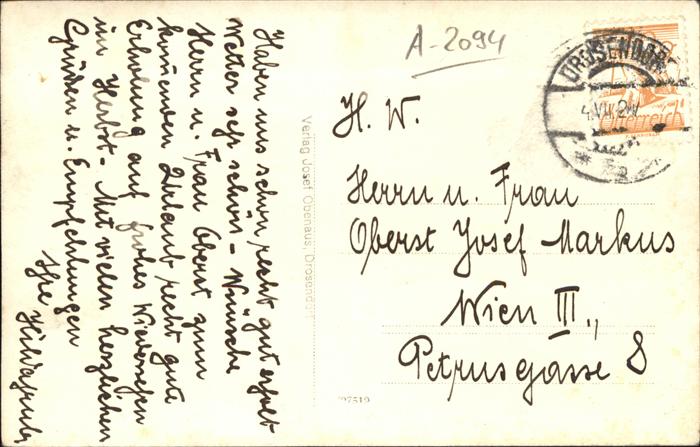 Haben uns schon recht gut erholt
Wetter sehr schön - Wünsche
Herrn u. Frau Oberst zum
kommenden Urlaub recht gute
Erholung auf frohes Wiedersehen
im Herbst - Mit vielen herzlichen
Grüßen u. Empfehlungen
Ihre
Verlag Josef Obenaus, Drosendorf
A-2094
DROSENDORF
Österreich
H. W.
Herrn u. Frau
Oberst Josef Markus
Wien III.,
Petrusgasse 8